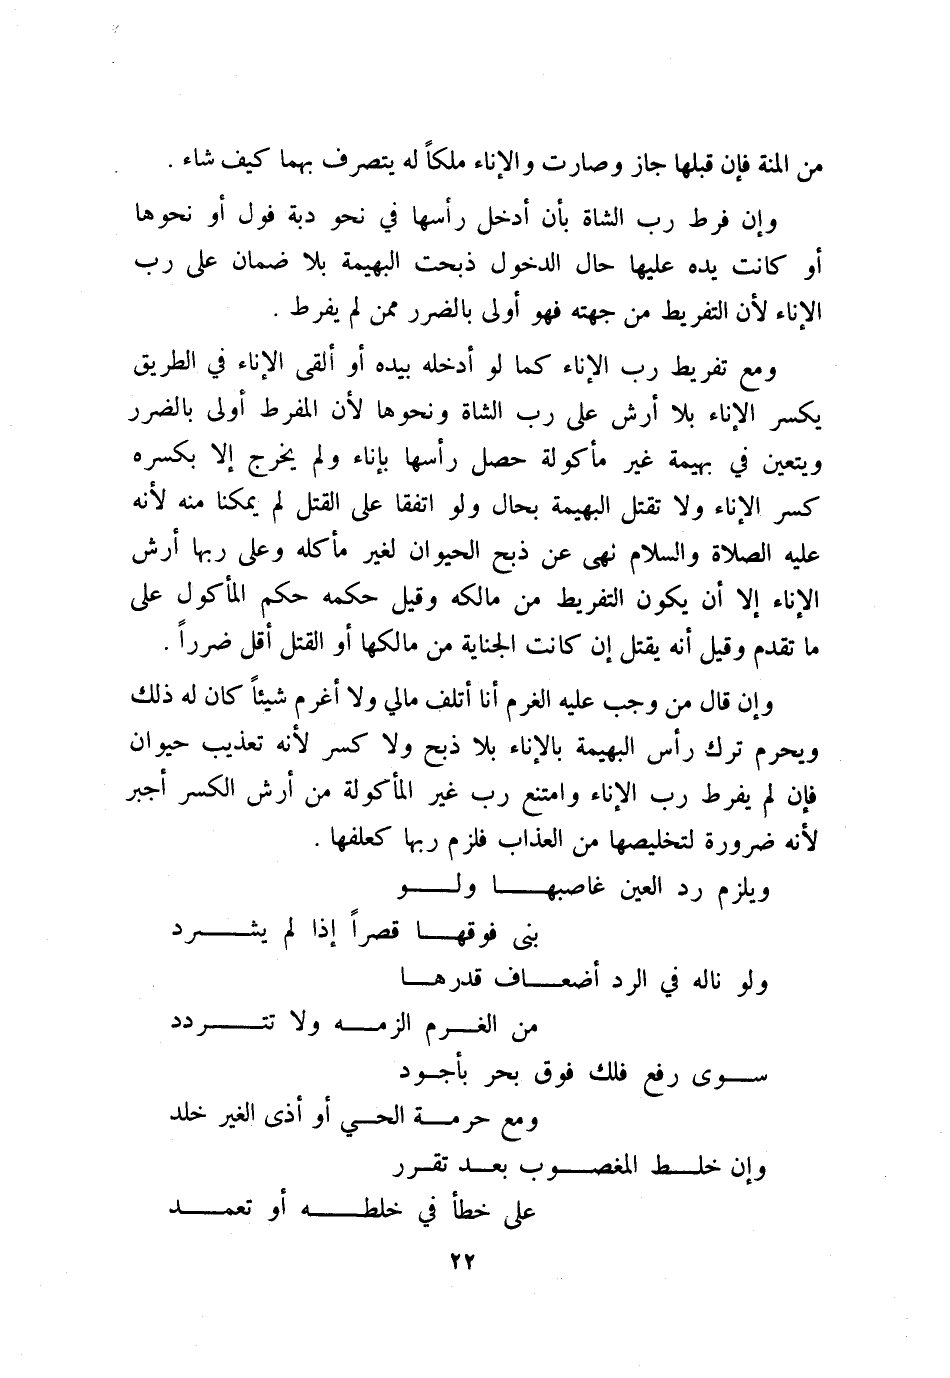 من المنة فإن قبلها جاز وصارت والإناء ملكاً له يتصرف بهما كيف شاء .
وإن فرط رب الشاة بأن أدخل رأسها في نحو دبة فول أو نحوها
أو كانت يده عليها حال الدخول ذبحت البهيمة بلا ضمان على رب
الإناء لأن التفريط من جهته فهو أولى بالضرر ممن لم يفرط .
ومع تفريط رب الإناء كما لو أدخله بيده أو ألقى الإناء في الطريق
يكسر الإناء بلا أرش على رب الشاة ونحوها لأن المفرط أولى بالضرر
ويتعين في بهيمة غير مأكولة حصل رأسها بإناء ولم يخرج إلا بكسره
كسر الإناء ولا تقتل البهيمة بحال ولو اتفقا على القتل لم يمكنا منه لأنه
عليه الصلاة والسلام نهى عن ذبح الحيوان لغير مأكله وعلى ربها أرش
الإناء إلا أن يكون التفريط من مالكه وقيل حكمه حكم المأكول على
ما تقدم وقيل أنه يقتل إن كانت الجناية من مالكها أو القتل أقل ضرراً .
وإن قال من وجب عليه الغرم أنا أتلف مالي ولا أغرم شيئاً كان له ذلك
ويحرم ترك رأس البهيمة بالإناء بلا ذبح ولا كسر لأنه تعذيب حيوان
فإن لم يفرط رب الإناء وامتنع رب غير المأكولة من أرش الكسر أجبر
لأنه ضرورة لتخليصها من العذاب فلزم ربها كعلفها .
ويلزم رد العين غاصبها ولو
بنى فوقها قصراً إذا لم يشرد
ولو ناله في الرد أضعاف قدرها
من الغرم الزمه ولا تتردد
سوى رفع فلك فوق بحر بأجود
ومع حرمة الحي أو أذى الغير خلد
وإن خلط المغصوب بعد تقرر
على خطأ في خلطه أو تعمد
٢٢